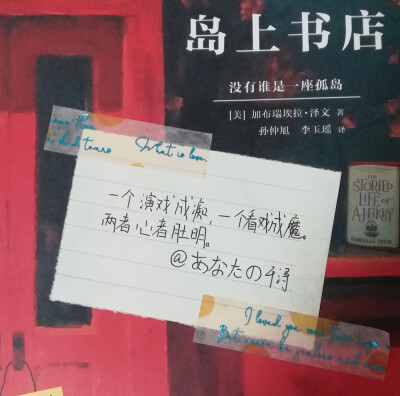 岛上书店
没有谁是一座孤岛
[美] 加布瑞埃拉·泽文 著
孙仲旭 李玉瑶 译
What is love
THE
STORIED
LIFE OF
A.J. FIKRY
一个演戏成痴,一个看戏成魔。
两者心者肚明。
@あなたの
I loved you
But never be